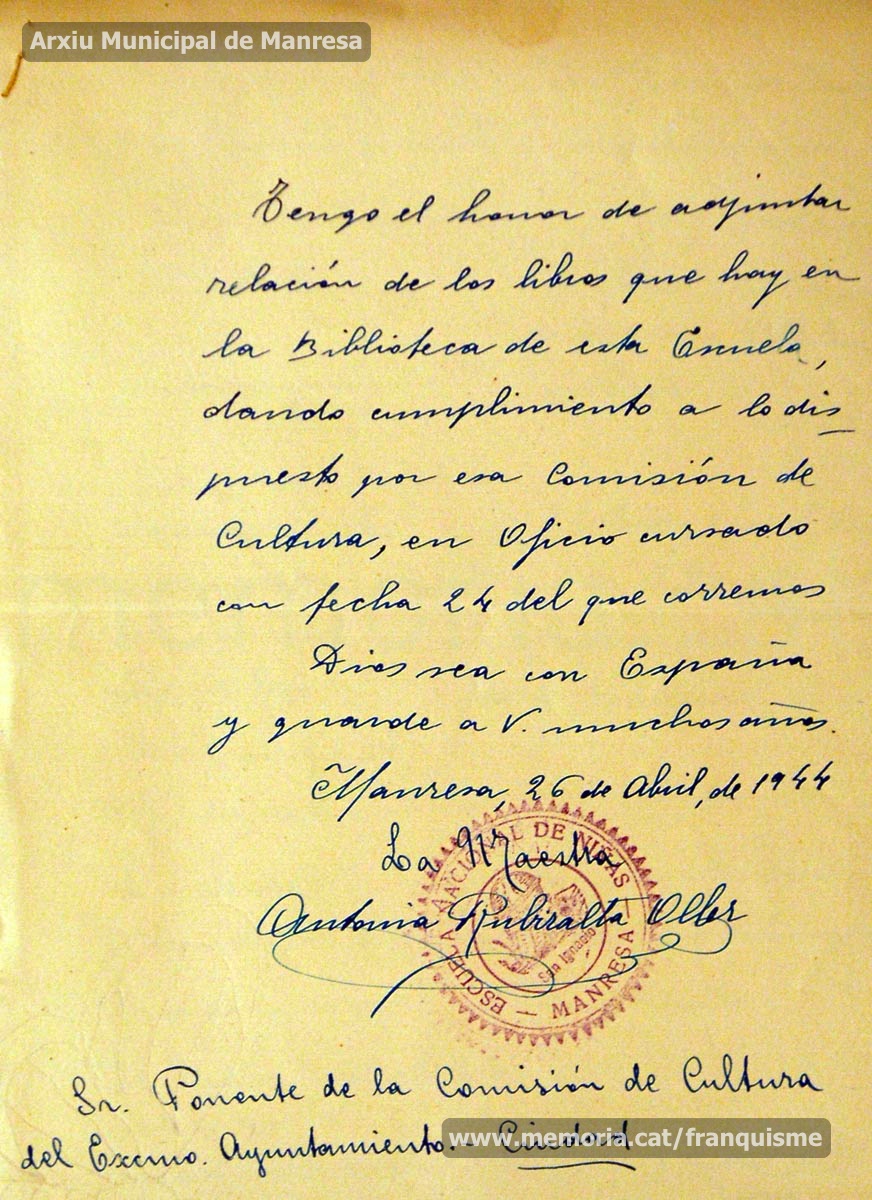 Arxiu Municipal de Manresa
Tengo el honor de adjuntar
relación de los libros que hay en
la Biblioteca de esta Escuela,
dando cumplimiento a lo dis-
puesto por esa Comisión de
Cultura, en Oficio cursado
con fecha 24 del que corremos
Dios sea con España
y guarde a V. muchos años.
Manresa, 26 de Abril, de 1944
La Maestra
Antonia Rubiralta Oller
ESCUELA NACIONAL DE NIÑAS — MANRESA —
San Ignacio
Sr. Ponente de la Comisión de Cultura
del Excmo. Ayuntamiento. - Ciudad
www.memoria.cat/franquisme